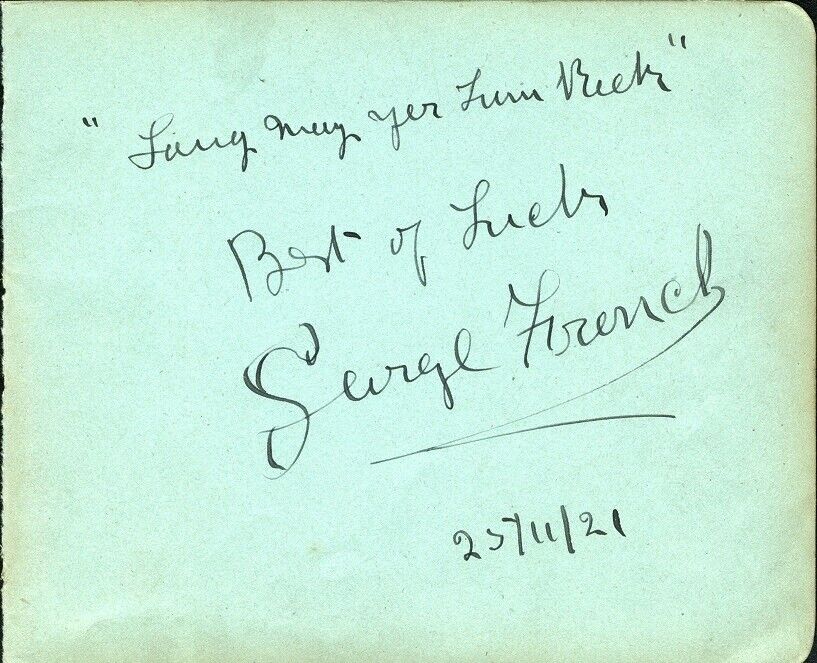 "Lang may yer Lum Reek"
Best of Luck
George French
25/11/21